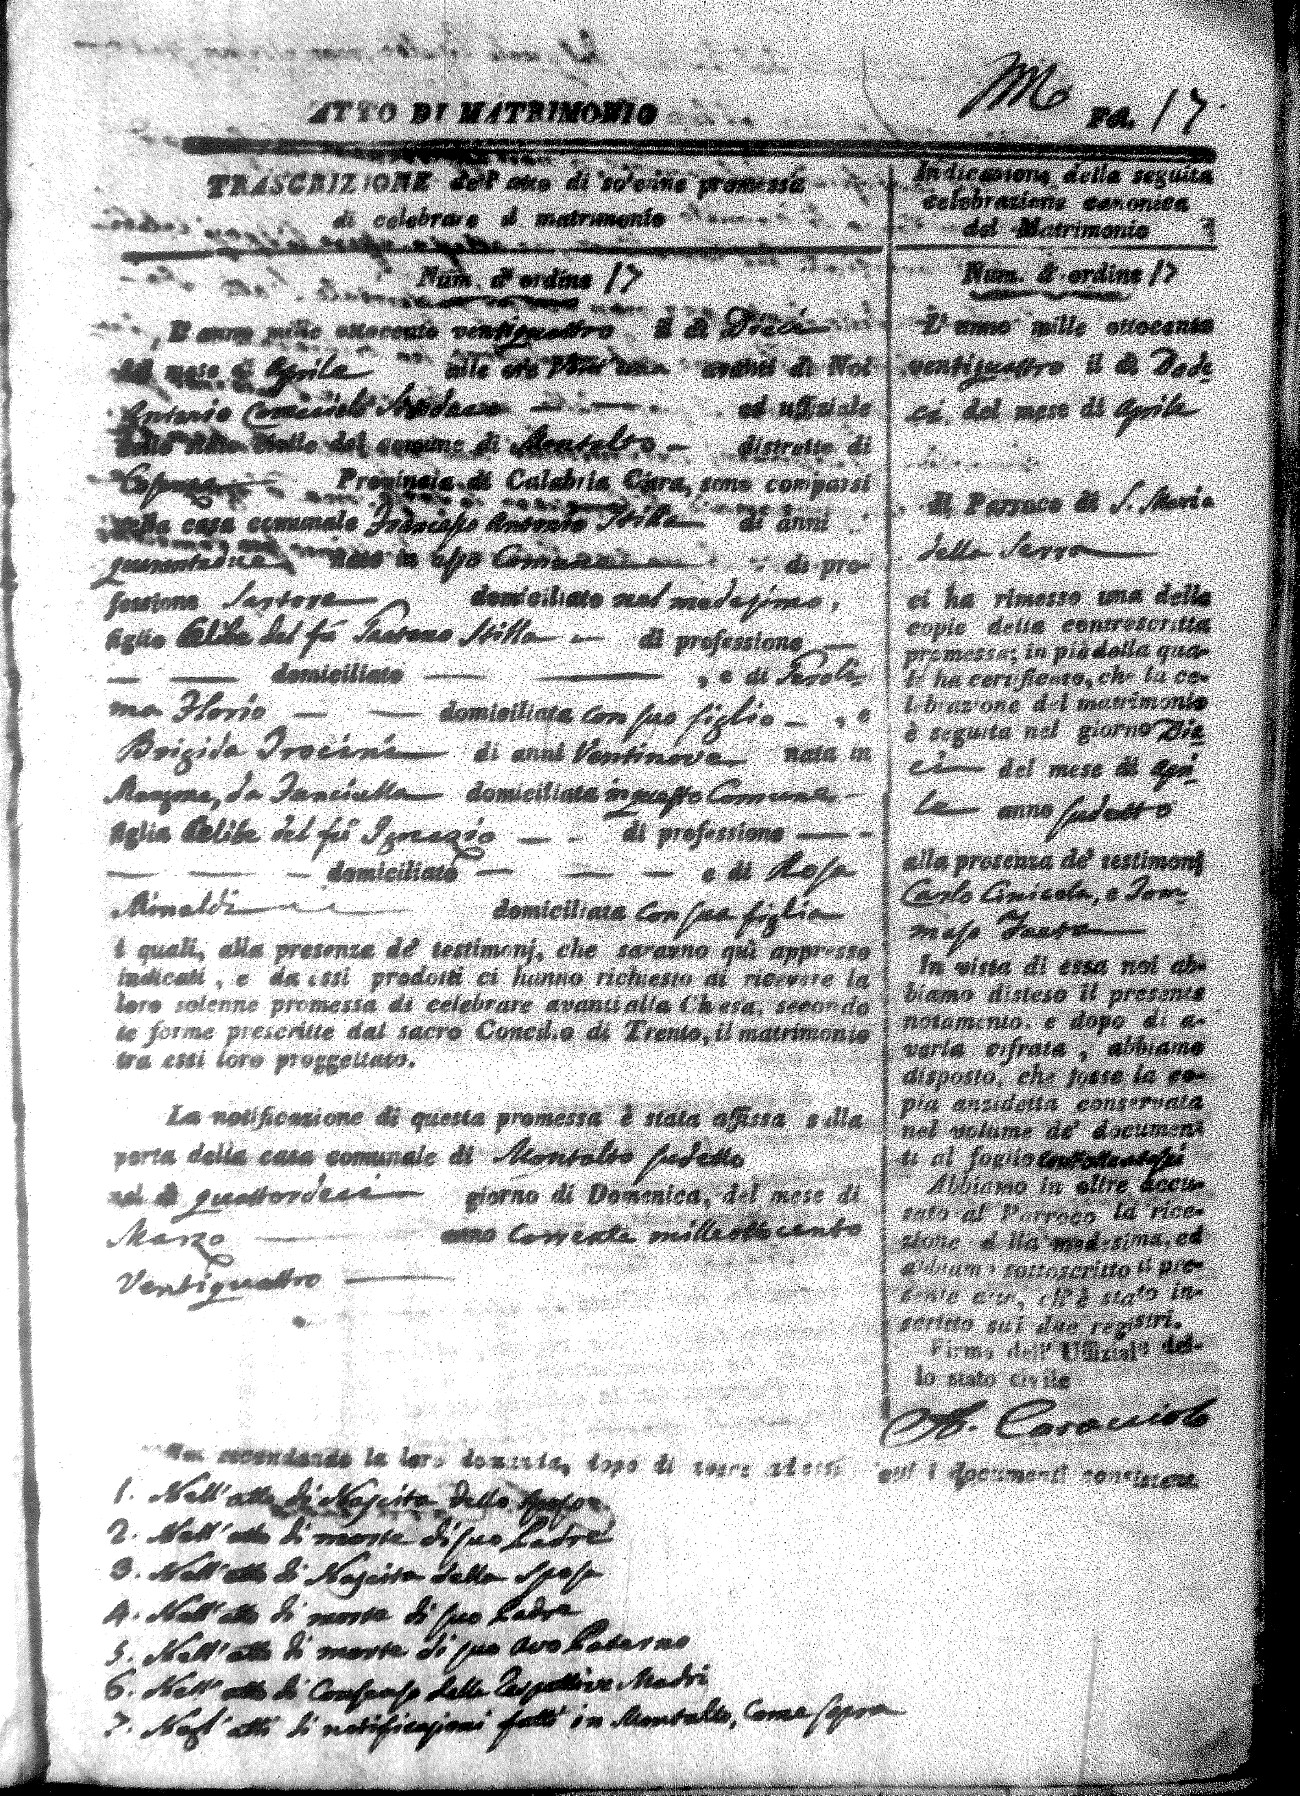 ATTO DI MATRIMONIO
Fol. 17.
TRASCRIZIONE dell' atto di solenne promessa
di celebrare il matrimonio
Num. d' ordine 17
L' anno mille ottocento ventiquattro il di Dieci
del mese di Aprile alle ore avanti di Noi
Antonio Caracciolo Sindaco ed uffiziale
dello stato civile del comune di Montalto distretto di
Cosenza Provincia di Calabria Citra, sono comparsi
nella casa comunale Francesco Antonio Stilla di anni
quarantadue nato in esso Comune di pro-
fessione Sartore domiciliato nel medesimo,
figlio Celibe del fù Gaetano Stilla di professione
domiciliato , e di Geroli-
ma Florio domiciliata con suo figlio , e
Brigida Trocini di anni Ventinove nata in
da Fanciulla domiciliata in questo Comune,
figlia Celibe del fù Ignazio di professione
domiciliato e di Rosa
Rinaldi domiciliata con sua figlia
i quali, alla presenza de' testimonj, che saranno quì appresso
indicati, e da essi prodotti ci hanno richiesto di ricevere la
loro solenne promessa di celebrare avanti alla Chiesa, secondo
le forme prescritte dal sacro Concilio di Trento, il matrimonio
tra essi loro proggettato.
La notificazione di questa promessa è stata affissa sulla
porta della casa comunale di Montalto sudetto
nel dì quattordeci giorno di Domenica, del mese di
Marzo anno corrente milleottocento
Ventiquattro
Indicazione della seguita
celebrazione canonica
del Matrimonio
Num. d' ordine 17
L' anno mille ottocento
ventiquattro il di Dode-
ci del mese di Aprile
il Parroco di S. Maria
della Serra
ci ha rimesso una delle
copie della controscritta
promessa; in piè della qua-
le ha certificato, che la ce-
lebrazione del matrimonio
è seguita nel giorno Die-
ci del mese di Apri-
le anno sudetto
alla presenza de' testimonj
Carlo Cinicola, e Tom-
maso
In vista di essa noi ab-
biamo disteso il presente
notamento, e dopo di a-
verla cifrata, abbiamo
disposto, che fosse la co-
pia anzidetta conservata
nel volume de' documen-
ti al foglio
Abbiamo in oltre accu-
sato al Parroco la rice-
zione della medesima, ed
abbiamo sottoscritto il pre-
sente atto, ch' è stato in-
scritto sui due registri.
Firma dell' Uffiziale del-
lo stato civile
A. Caracciolo
Noi secondando la loro domanda, dopo di i documenti consistenti
1. Nell' atto di Nascita dello Sposo
2. Nell' atto di morte di suo Padre
3. Nell' atto di Nascita della Sposa
4. Nell' atto di morte di suo Padre
5. Nell' atto di morte di suo Avo Paterno
6. Nell' atto di Consenso delle rispettive Madri
7. Negl' atti di notificazioni fatti in Montalto, come sopra